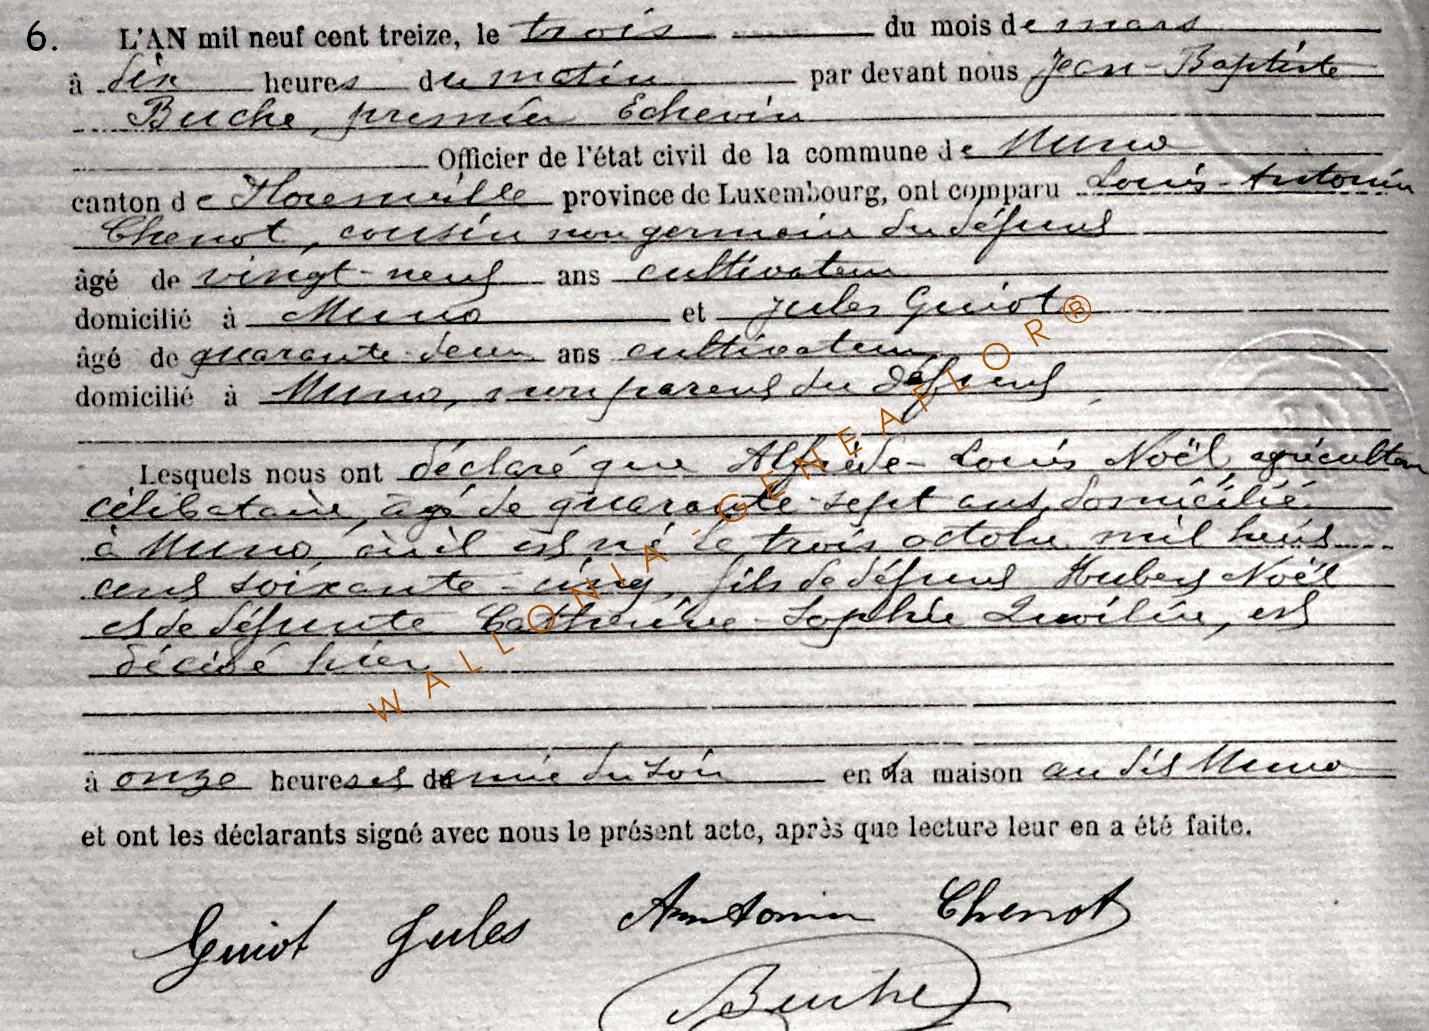 6. L'AN mil neuf cent treize, le trois du mois de mars
à dix heures du matin par devant nous Jean-Baptiste
Buche, premier Echevin
Officier de l'état civil de la commune de Muno
canton de Florenville province de Luxembourg, ont comparu Louis-Antonin
Chenot, cousin non germain du défunt
âgé de vingt-neuf ans cultivateur
domicilié à Muno et Jules Guiot
âgé de quarante-deux ans cultivateur
domicilié à Muno, non parent du défunt
Lesquels nous ont déclaré que Alfrède-Louis Noël, agriculteur
célibataire, âgé de quarante-sept ans, domicilié
à Muno, où il est né le trois octobre mil huit
cent soixante-cinq, fils de défunt Hubert Noël
et de défunte Catherine-Sophie, est
décédé hier
à onze heures et demie du soir en la maison au dit Muno
et ont les déclarants signé avec nous le présent acte, après que lecture leur en a été faite.
Guiot Jules Antonin Chenot
Buche
WALLONIA-GENEAFLOR®